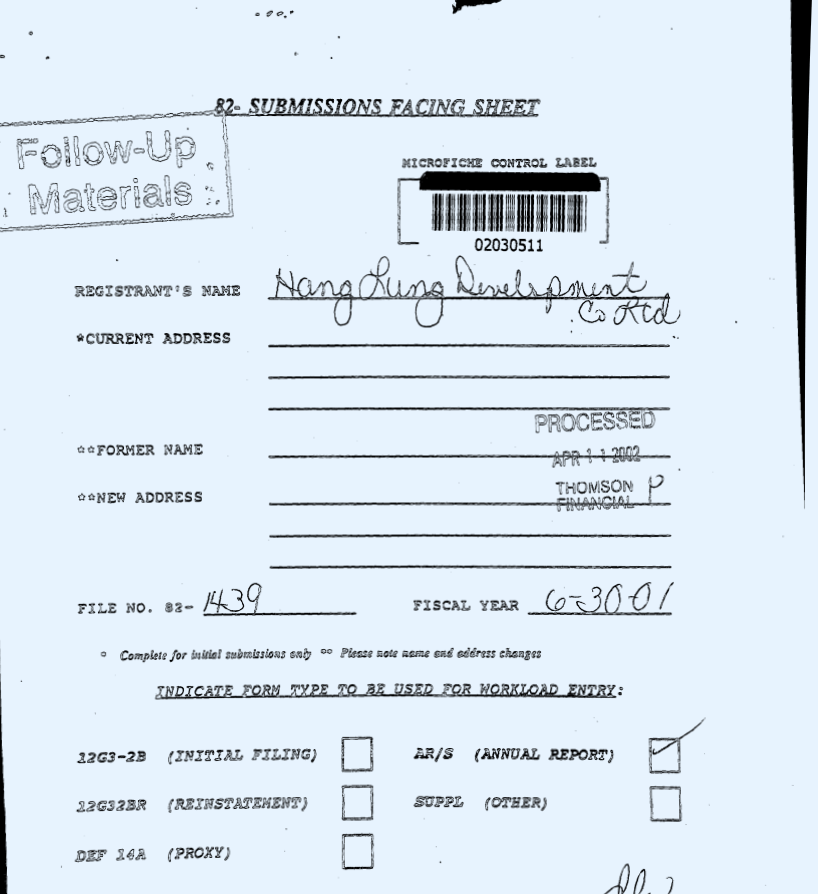 82- SUBMISSIONS FACING SHEET
Follow-Up
Materials
MICROFICHE CONTROL LABEL
02030511
REGISTRANT'S NAME Hang Lung Development
Co Ltd
*CURRENT ADDRESS
PROCESSED
**FORMER NAME
APR 11 2002
**NEW ADDRESS
THOMSON P
FINANCIAL
FILE NO. 82- 1439 FISCAL YEAR 6-30-01
* Complete for initial submissions only ** Please note name and address changes
INDICATE FORM TYPE TO BE USED FOR WORKLOAD ENTRY:
12G3-2B (INITIAL FILING) AR/S (ANNUAL REPORT)
12G32BR (REINSTATEMENT) SUPPL (OTHER)
DEF 14A (PROXY)